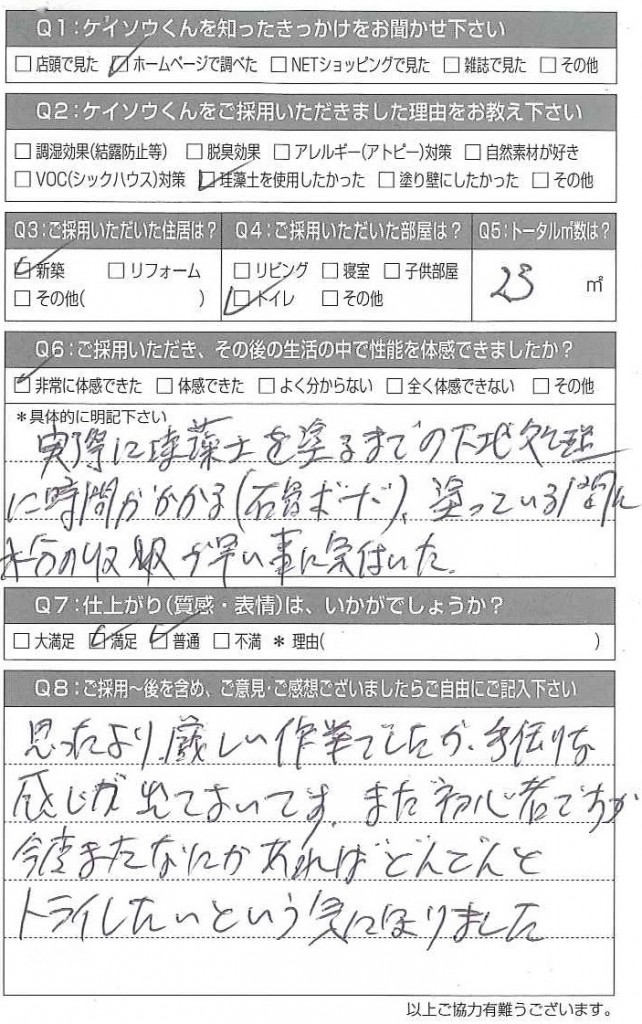 Q1:ケイソウくんを知ったきっかけをお聞かせ下さい
□店頭で見た ☑ホームページで調べた □NETショッピングで見た □雑誌で見た □その他
Q2:ケイソウくんをご採用いただきました理由をお教え下さい
□調湿効果(結露防止等) □脱臭効果 □アレルギー(アトピー)対策 □自然素材が好き
□VOC(シックハウス)対策 ☑珪藻土を使用したかった □塗り壁にしたかった □その他
Q3:ご採用いただいた住居は?
☑新築 □リフォーム
□その他( )
Q4:ご採用いただいた部屋は?
□リビング □寝室 □子供部屋
☑トイレ □その他
Q5:トータル㎡数は?
23 ㎡
Q6:ご採用いただき、その後の生活の中で性能を体感できましたか?
☑非常に体感できた □体感できた □よく分からない □全く体感できない □その他
*具体的に明記下さい
実際に珪藻土を塗るまでの下地処理
に時間がかかる(石膏ボード)、塗っている間に
水分の収吸が早い事に気付いた.
Q7:仕上がり(質感・表情)は、いかがでしょうか?
□大満足 ☑満足 ☑普通 □不満 *理由( )
Q8:ご採用〜後を含め、ご意見・ご感想ございましたらご自由にご記入下さい
思ったより厳しい作業でしたが、手作りな
感じが出てよいです。まだ初心者ですが
今度またなにかあればどんどんと
トライしたいという気になりました
以上ご協力有難うございます。